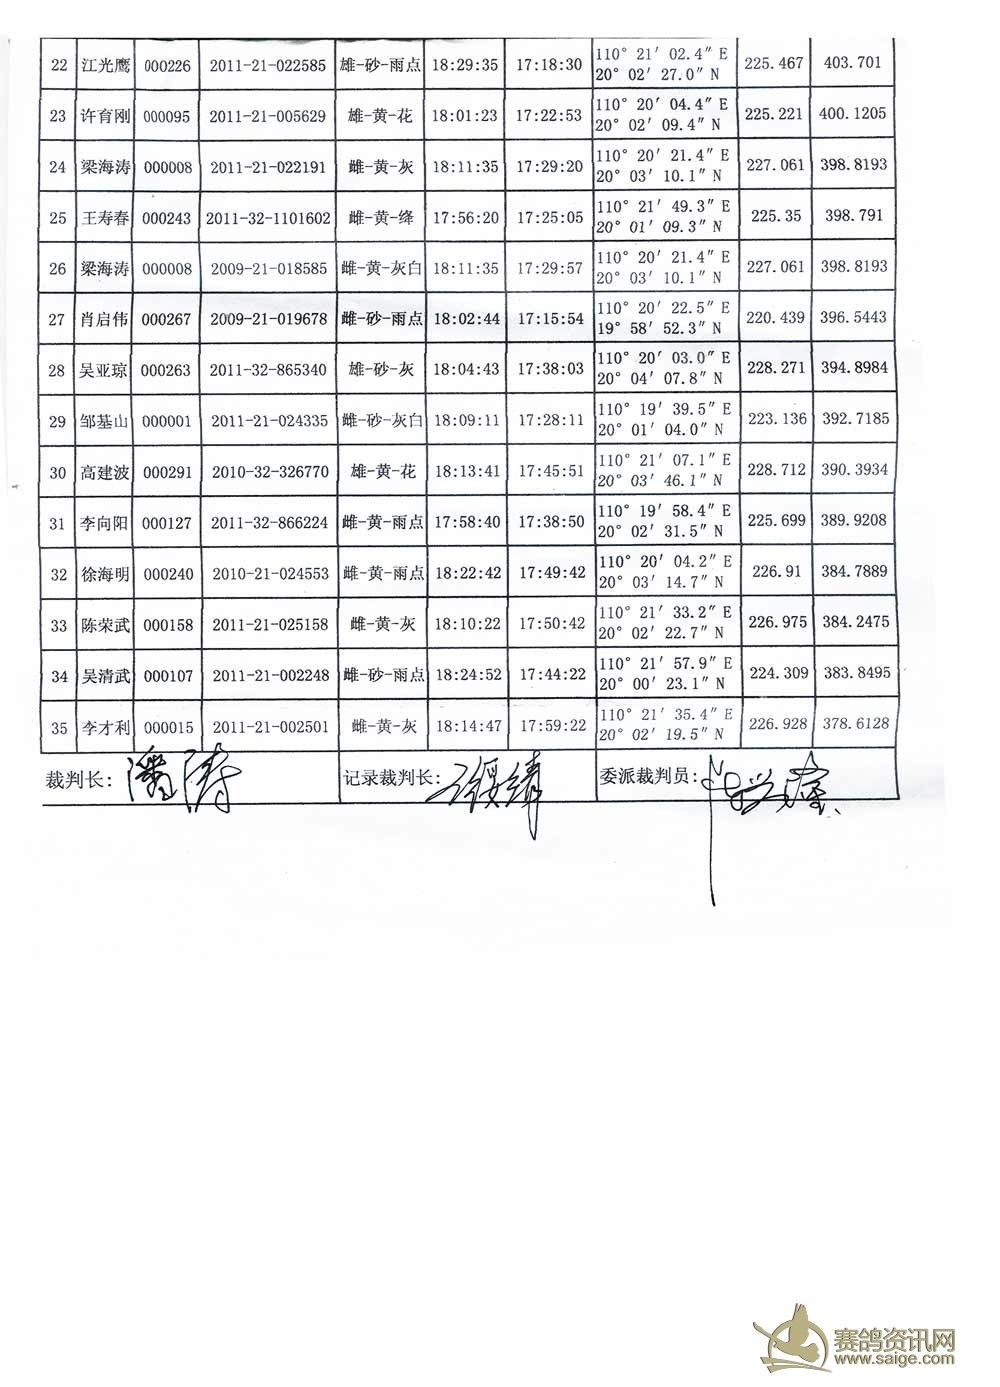 22 江光鹰 000226 2011-21-022585 雄-砂-雨点 18:29:35 17:18:30 110° 21′ 02.4″ E 20° 02′ 27.0″ N 225.467 403.701
23 许育刚 000095 2011-21-005629 雄-黄-花 18:01:23 17:22:53 110° 20′ 04.4″ E 20° 02′ 09.4″ N 225.221 400.1205
24 梁海涛 000008 2011-21-022191 雌-黄-灰 18:11:35 17:29:20 110° 20′ 21.4″ E 20° 03′ 10.1″ N 227.061 398.8193
25 王寿春 000243 2011-32-1101602 雌-黄-绛 17:56:20 17:25:05 110° 21′ 49.3″ E 20° 01′ 09.3″ N 225.35 398.791
26 梁海涛 000008 2009-21-018585 雌-黄-灰白 18:11:35 17:29:57 110° 20′ 21.4″ E 20° 03′ 10.1″ N 227.061 398.8193
27 肖启伟 000267 2009-21-019678 雌-砂-雨点 18:02:44 17:15:54 110° 20′ 22.5″ E 19° 58′ 52.3″ N 220.439 396.5443
28 吴亚琼 000263 2011-32-865340 雄-砂-灰 18:04:43 17:38:03 110° 20′ 03.0″ E 20° 04′ 07.8″ N 228.271 394.8984
29 邹基山 000001 2011-21-024335 雌-砂-灰白 18:09:11 17:28:11 110° 19′ 39.5″ E 20° 01′ 04.0″ N 223.136 392.7185
30 高建波 000291 2010-32-326770 雄-黄-花 18:13:41 17:45:51 110° 21′ 07.1″ E 20° 03′ 46.1″ N 228.712 390.3934
31 李向阳 000127 2011-32-866224 雌-黄-雨点 17:58:40 17:38:50 110° 19′ 58.4″ E 20° 02′ 31.5″ N 225.699 389.9208
32 徐海明 000240 2010-21-024553 雌-黄-雨点 18:22:42 17:49:42 110° 20′ 04.2″ E 20° 03′ 14.7″ N 226.91 384.7889
33 陈荣武 000158 2011-21-025158 雌-黄-灰 18:10:22 17:50:42 110° 21′ 33.2″ E 20° 02′ 22.7″ N 226.975 384.2475
34 吴清武 000107 2011-21-002248 雌-砂-雨点 18:24:52 17:44:22 110° 21′ 57.9″ E 20° 00′ 23.1″ N 224.309 383.8495
35 李才利 000015 2011-21-002501 雌-黄-灰 18:14:47 17:59:22 110° 21′ 35.4″ E 20° 02′ 19.5″ N 226.928 378.6128
裁判长: 潘涛 记录裁判长: 委派裁判员:
赛鸽资讯网
www.saige.com